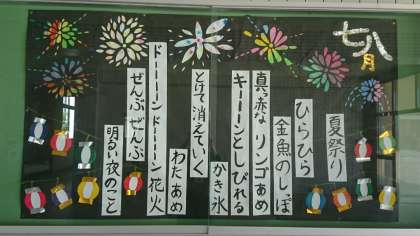 七八月
夏祭り
ひらひら
金魚のしっぽ
真っ赤な リンゴあめ
キーーンとしびれる
かき氷
とけて 消えていく
わたあめ
ドーーーン ドーーーン 花火
ぜんぶ ぜんぶ
明るい 夜のこと